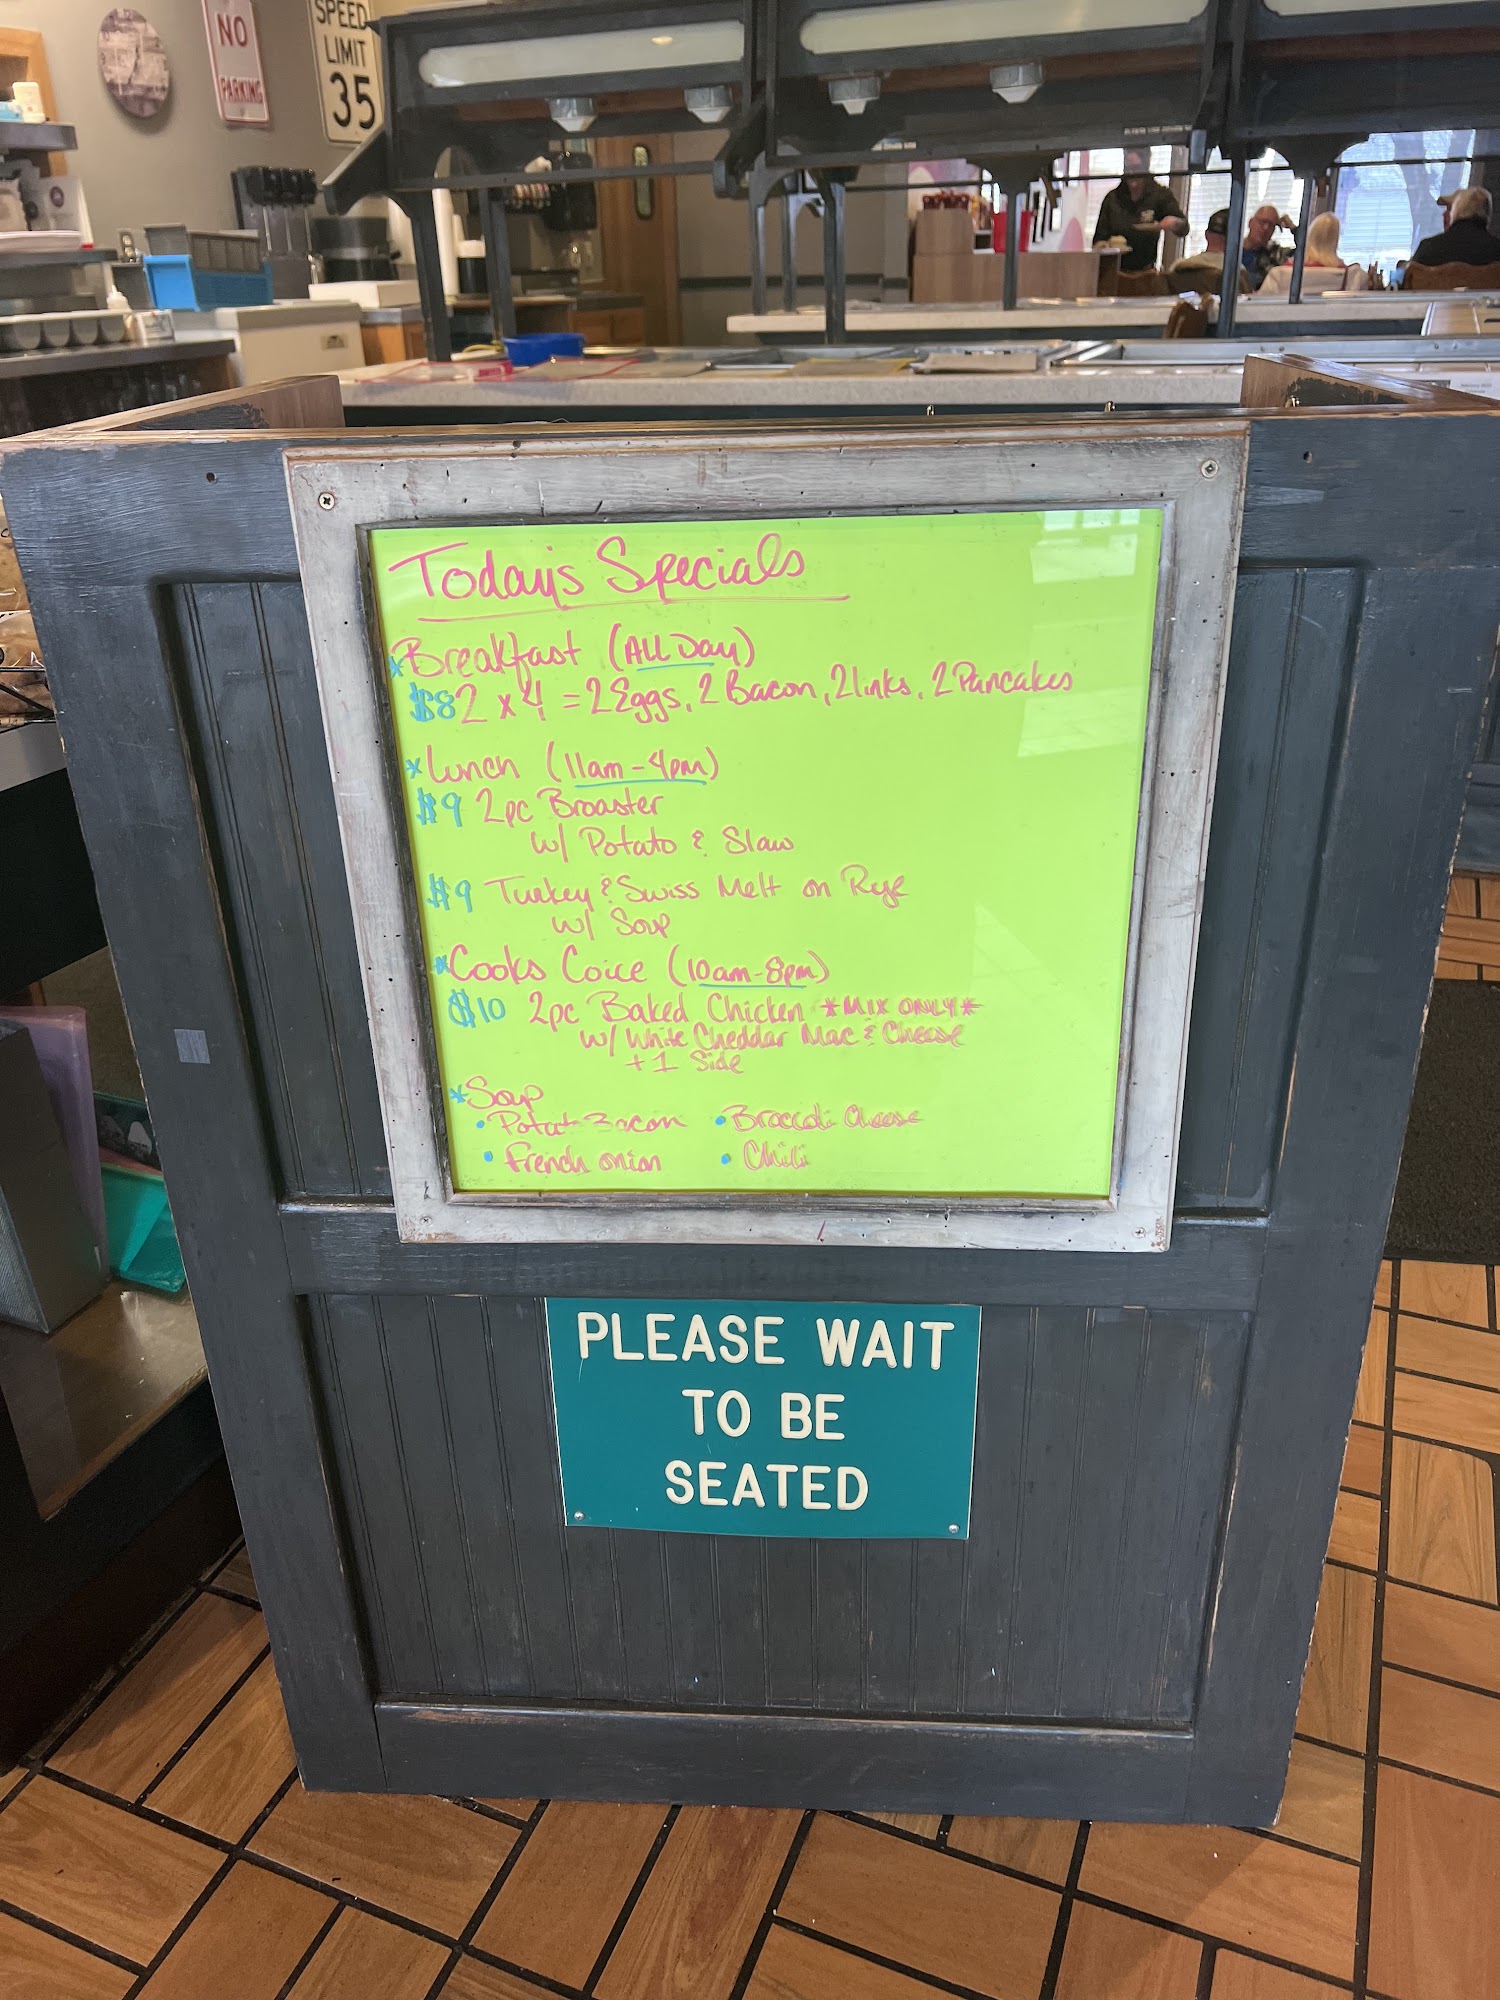 NO
PARKING
SPEED
LIMIT
35
Today's Specials
*Breakfast (ALL Day)
$8 2 x 4 = 2 Eggs, 2 Bacon, 2 links, 2 Pancakes
*Lunch (11am-4pm)
$9 2pc Broaster
w/ Potato & Slaw
$9 Turkey & Swiss Melt on Rye
w/ Soup
*Cooks Coice (10am-8pm)
$10 2pc Baked Chicken *MIX ONLY*
w/ White Cheddar Mac & Cheese
+ 1 Side
*Soup
• Potat Bacon • Broccoli Cheese
• French onion • Chili
PLEASE WAIT
TO BE
SEATED